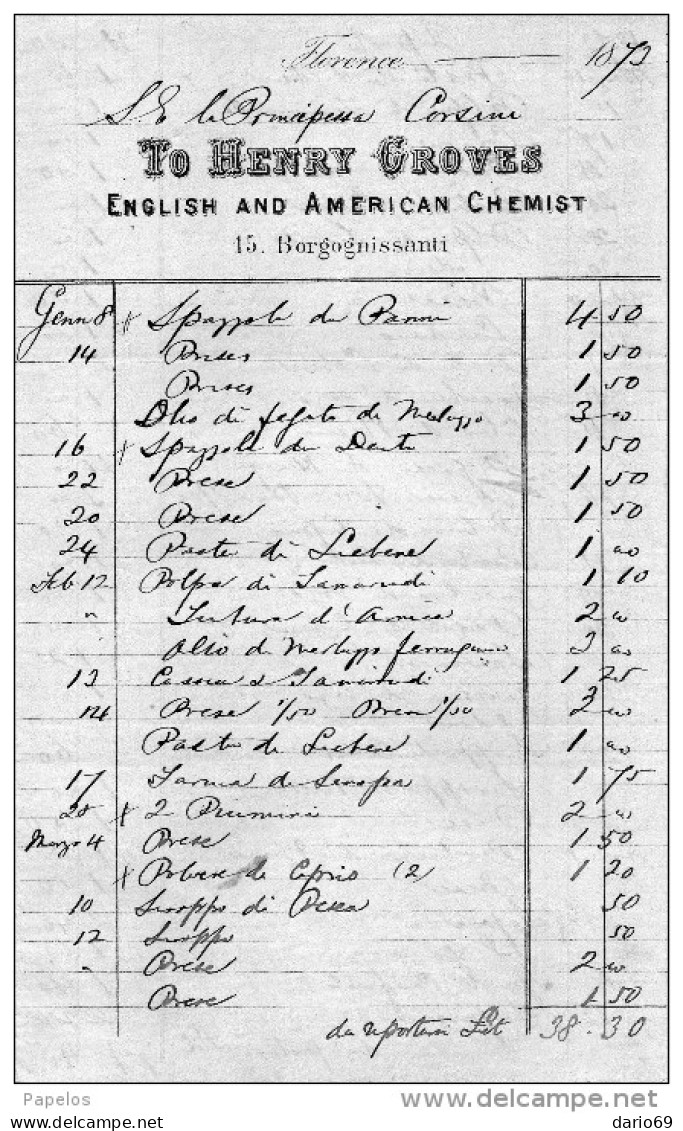 Florence 1873
S.E. la Principessa Corsini
TO HENRY GROVES
ENGLISH AND AMERICAN CHEMIST
15. Borgognissanti
Genn 8 Spazzole da Panni 4 50
14 Prese 1 50
Prese 1 50
Olio di fegato di Merluzzo 3 00
16 Spazzole da Denti 1 50
22 Prese 1 50
20 Prese 1 50
24 Paste di Lichene 1 00
Feb 12 Polpa di Tamarindi 1 10
" Tintura d'Arnica 2 00
Olio di Merluzzo ferruginoso 3 00
13 Cassia e Tamarindi 1 25
14 Prese 1/50 1/50 3 00
Paste di Lichene 1 00
17 Farina di Senapa 1 75
20 2 Piumini 2 00
Marzo 4 Prese 1 50
Polvere di Cipro (2) 1 20
10 Siroppo di Pesca 50
12 Siroppo 50
" Prese 2 00
Prese 1 50
da riportarsi Lit 38.30
Papelos
delcampe.net
dario69